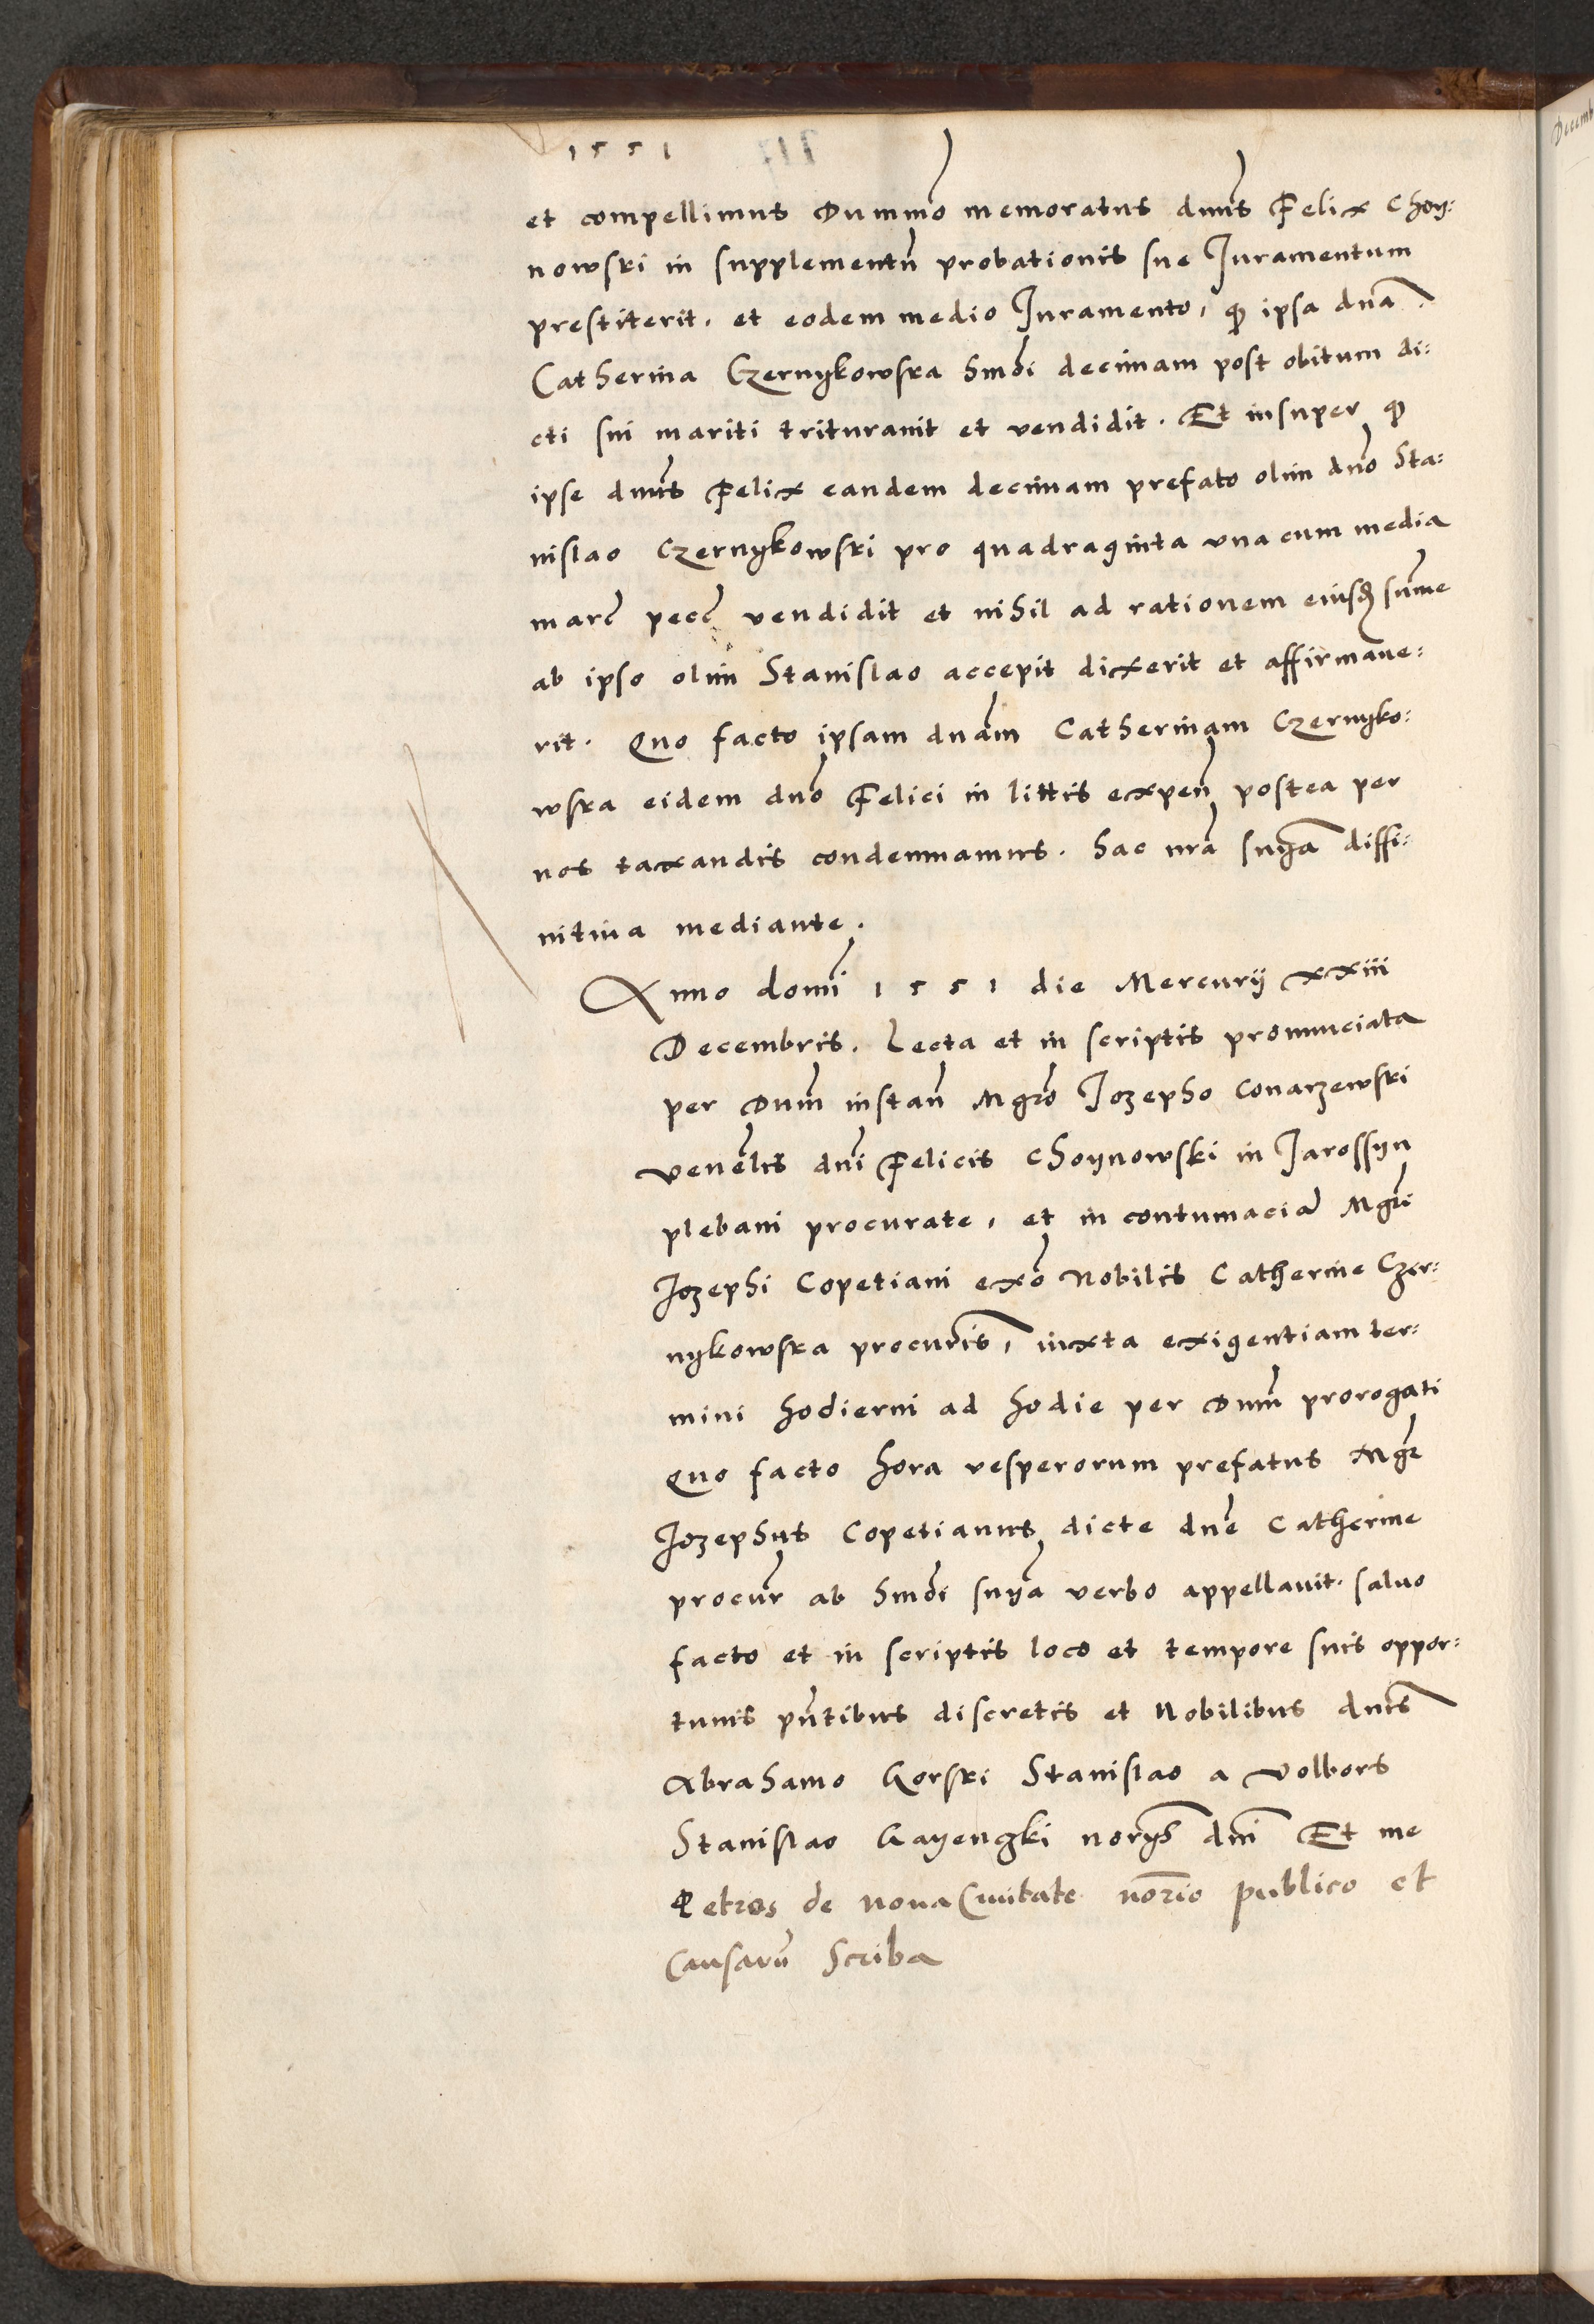 1551
et compellimus Dummo memoratus dnus Felix Choy:
nowski in supplementu probationis sue Juramentum
prestiterit. et eodem medio Juramento, q ipsa dna
Catherina Czernykowska hmoi decimam post obitum di:
cti sui mariti triturauit et vendidit. Et insuper q
ipse dnus Felix eandem decimam prefato olim dno Sta:
nislao Czernykowski pro quadraginta vna cum media
marc pecc vendidit et nihil ad rationem eiusd sume
ab ipso olim Stanislao accepit dixerit et affirmaue:
rit. Quo facto ipsam dnam Catherinam Czernyko:
wska eidem dno Felici in littis expen postea per
nos taxandis condemnamus. hac nra snya diffi:
nitiua mediante.
Anno domi 1551 die Mercurij xxiii
Decembris. Lecta et in scriptis pronunciata
per Dnm instan Mgro Jozepho Conarzewski
venelis dni Felicis Choynowski in Jarossyn
plebani procurate, et in contumacia Mgri
Jozephi Copetiani exo Nobilis Catherine Czer:
nykowska procuris, iuxta exigentiam ter:
mini hodierni ad hodie per Dnm prorogati
Quo facto hora vesperorum prefatus Mgr
Jozephus Copetianus dicte dne Catherine
procur ab hmoi snya verbo appellauit. saluo
facto et in scriptis loco et tempore suis oppor:
tunis pntibus discretis et Nobilibus dnis
Abrahamo Gorski Stanislao a Volbors
Stanislao Gayengki norys dni Et me
Petros de Noua Ciuitate norio publico et
Causaru Scriba